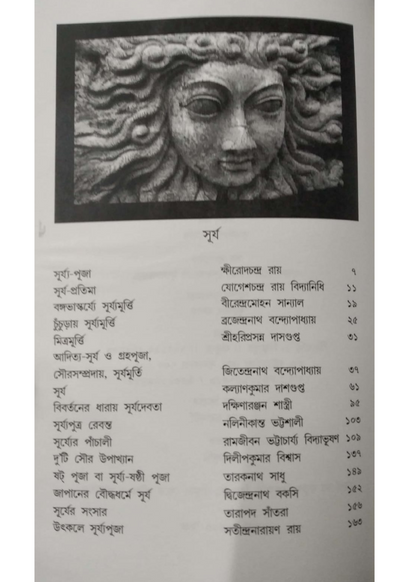 সূর্য
সূর্য্য-পূজা ক্ষীরোদচন্দ্র রায় ৭
সূর্য-প্রতিমা যোগেশচন্দ্র রায় বিদ্যানিধি ১১
বঙ্গভাস্কর্য্যে সূর্য্যমূর্ত্তি বীরেন্দ্রমোহন সান্যাল ১৯
চুঁচুড়ায় সূর্য্যমূর্ত্তি ব্রজেন্দ্রনাথ বন্দ্যোপাধ্যায় ২৫
মিত্রমূর্ত্তি শ্রীহরিপ্রসন্ন দাসগুপ্ত ৩১
আদিত্য-সূর্য ও গ্রহপূজা,
সৌরসম্প্রদায়, সূর্যমূর্তি জিতেন্দ্রনাথ বন্দ্যোপাধ্যায় ৩৭
সূর্য কল্যাণকুমার দাশগুপ্ত ৬১
বিবর্তনের ধারায় সূর্যদেবতা দক্ষিণারঞ্জন শাস্ত্রী ৯৫
সূর্য্যপুত্র রেবন্ত নলিনীকান্ত ভট্টশালী ১০৩
সূর্য্যের পাঁচালী রামজীবন ভট্টাচার্য্য বিদ্যাভূষণ ১০৯
দু'টি সৌর উপাখ্যান দিলীপকুমার বিশ্বাস ১৩৭
ষট্ পূজা বা সূর্য্য-ষষ্ঠী পূজা তারকনাথ সাধু ১৪৯
জাপানের বৌদ্ধধর্মে সূর্য দ্বিজেন্দ্রনাথ বকসি ১৫২
সূর্যের সংসার তারাপদ সাঁতরা ১৫৬
উৎকলে সূর্য্যপূজা সতীন্দ্রনারায়ণ রায় ১৬৩